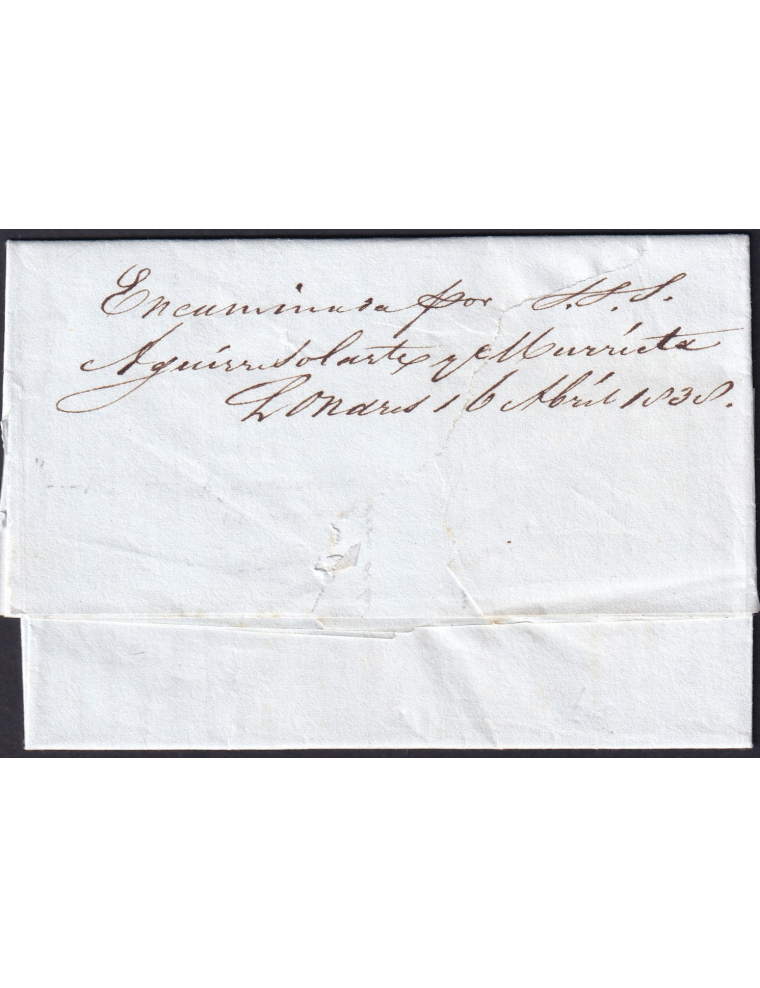 Encaminada por S.S.S.
Aguirresolarte y Murrieta
Londres 16 Abril 1838.